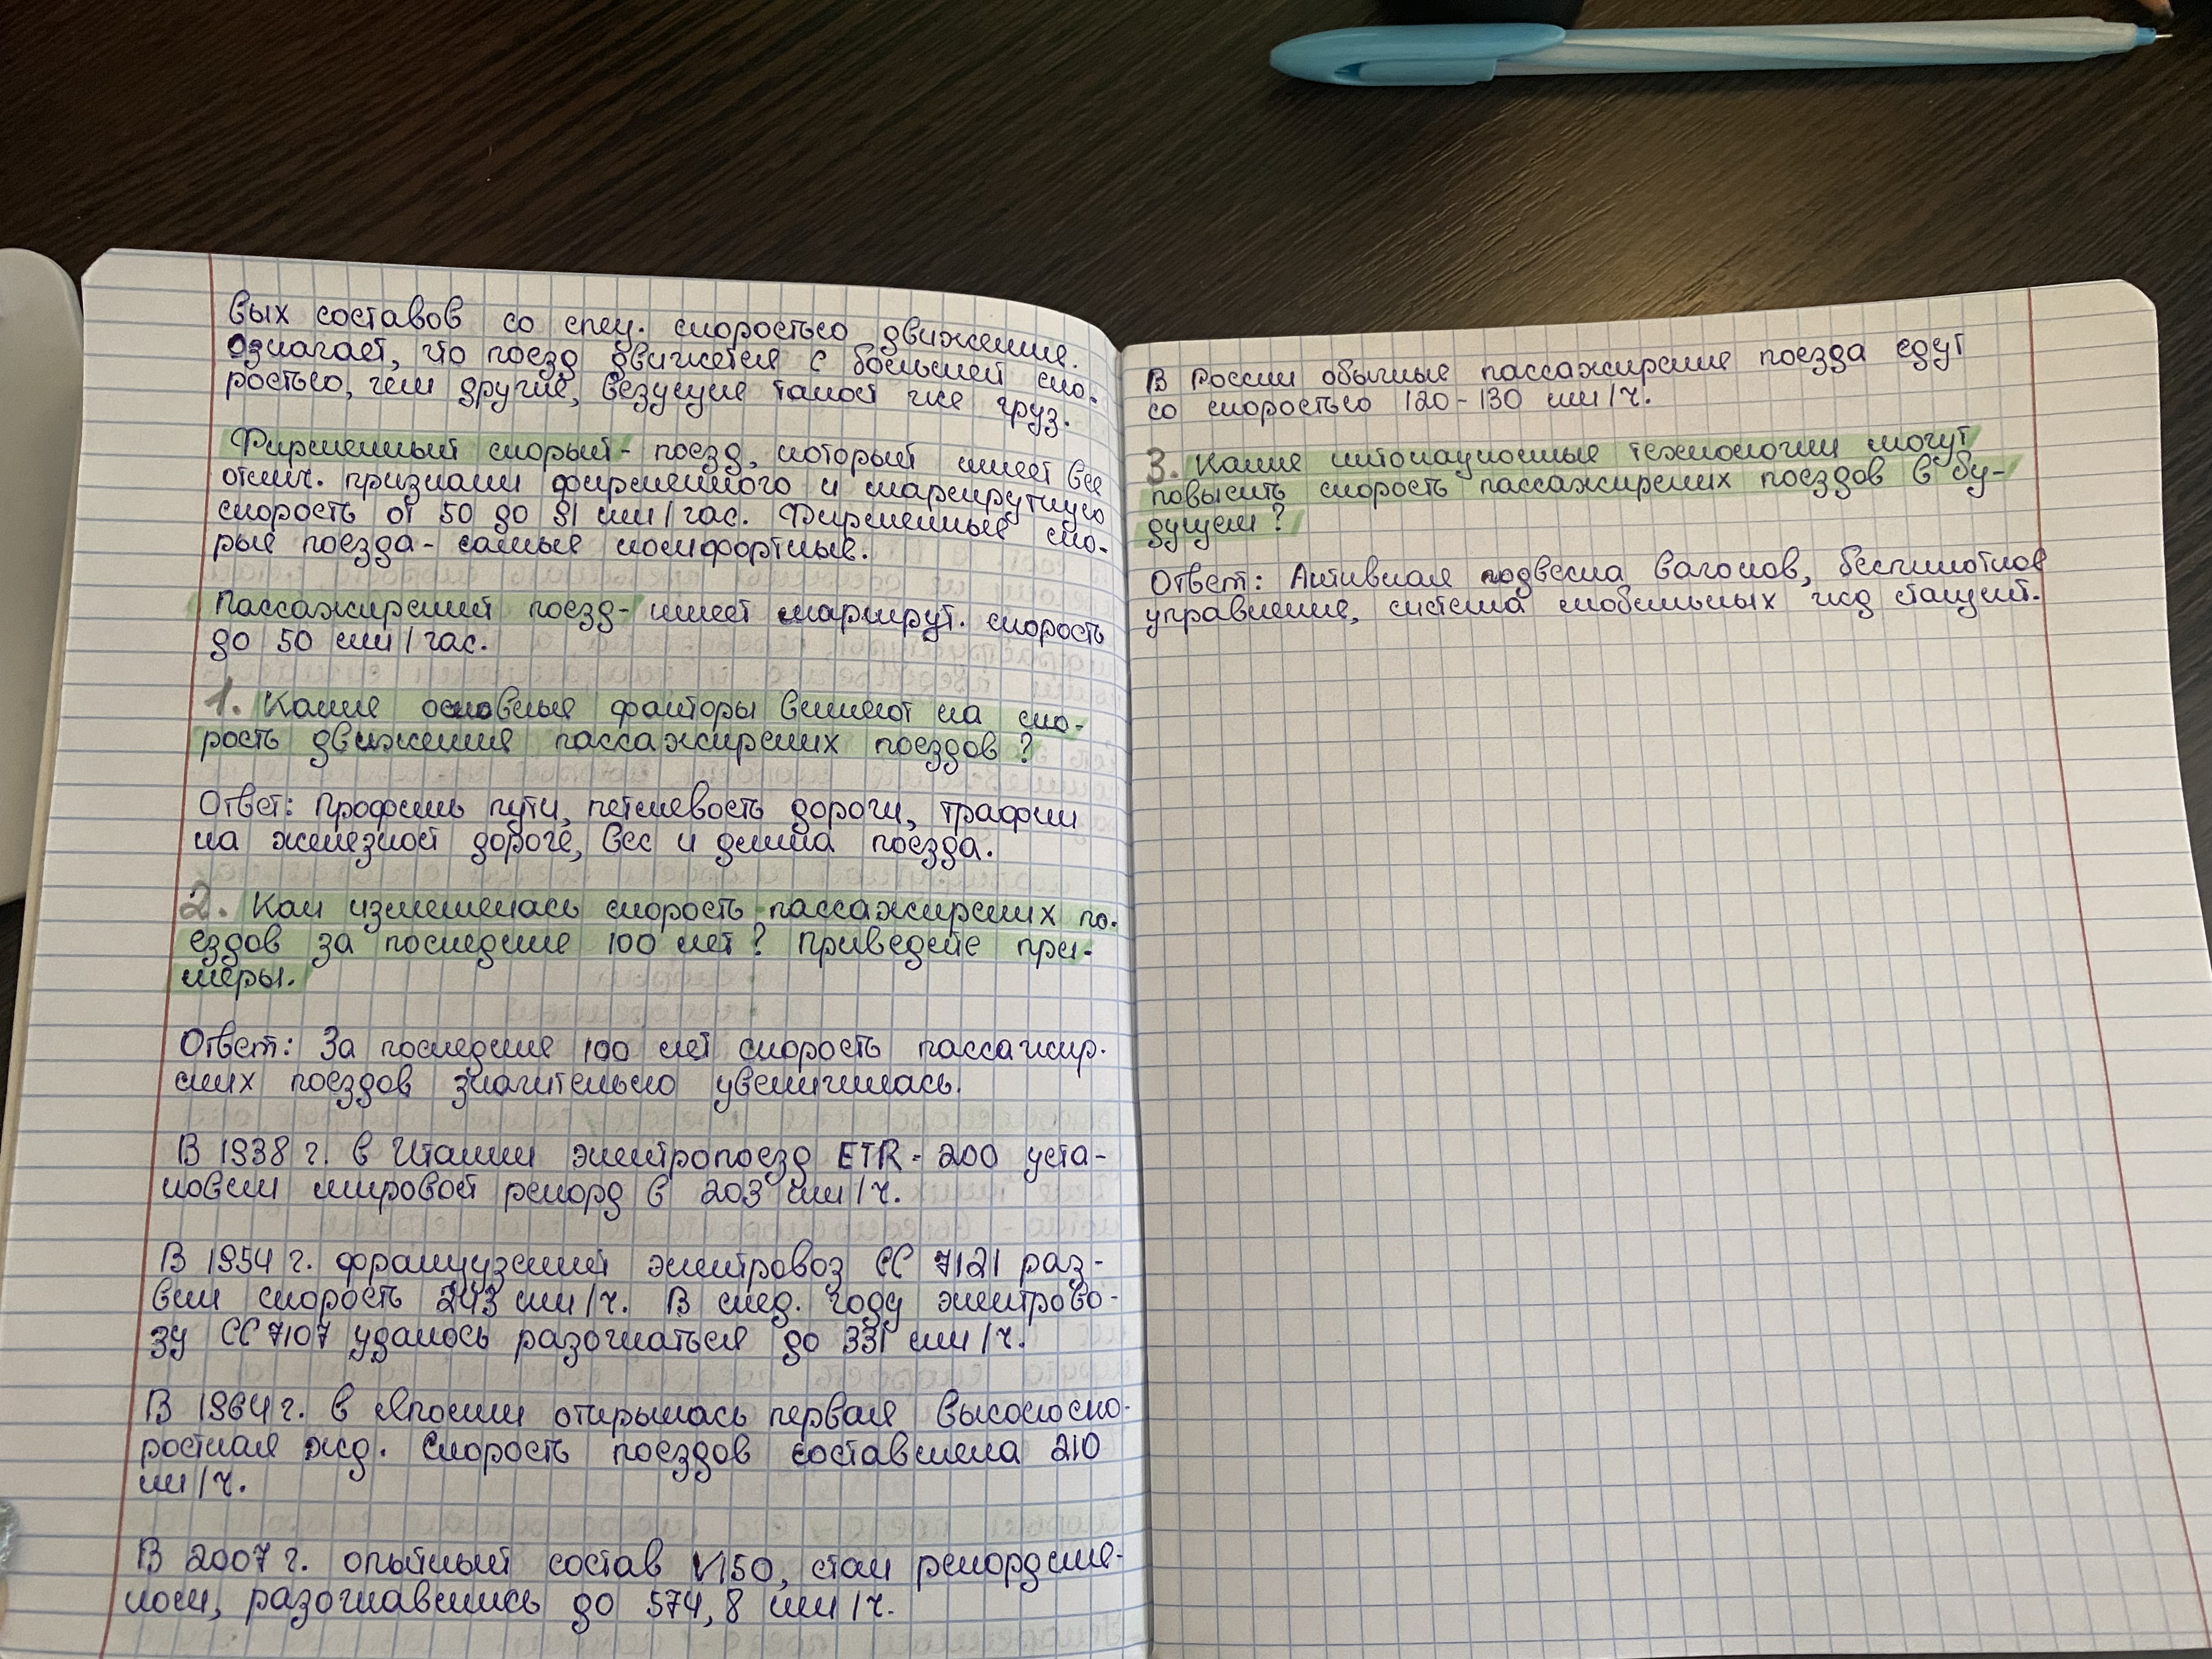 вых составов со спец. скоростью движения.
Означает, что поезд движется с большей ско-
ростью, чем другие, везущие такой же груз.
Фирменный скорый - поезд, который имеет все
отлич. признаки фирменного и маршрутную
скорость от 50 до 91 км/час. Фирменные ско-
рые поезда - самые комфортные.
Пассажирский поезд - имеет маршрут. скорость
до 50 км/час.
1. Какие основные факторы влияют на ско-
рость движения пассажирских поездов?
Ответ: Профиль пути, петлевость дороги, трафик
на железной дороге, вес и длина поезда.
2. Как изменилась скорость пассажирских по-
ездов за последние 100 лет? Приведите при-
меры.
Ответ: За последние 100 лет скорость пассажир-
ских поездов значительно увеличилась.
В 1938 г. в Италии электропоезд ETR-200 уста-
новил мировой рекорд в 203 км/ч.
В 1954 г. французский электровоз CC 7121 раз-
вил скорость 243 км/ч. В след. году электрово-
зу CC 7107 удалось разогнаться до 331 км/ч.
В 1964 г. в Японии открылась первая высокоско-
ростная жд. Скорость поездов составляла 210
км/ч.
В 2007 г. опытный состав V150, стал рекордсме-
ном, разогнавшись до 574,8 км/ч.
В России обычные пассажирские поезда едут
со скоростью 120-130 км/ч.
3. Какие технологии могут
повысить скорость пассажирских поездов в бу-
дущем?
Ответ: Активная подвеска вагонов, беспилотное
управление, система мобильных жд станций.